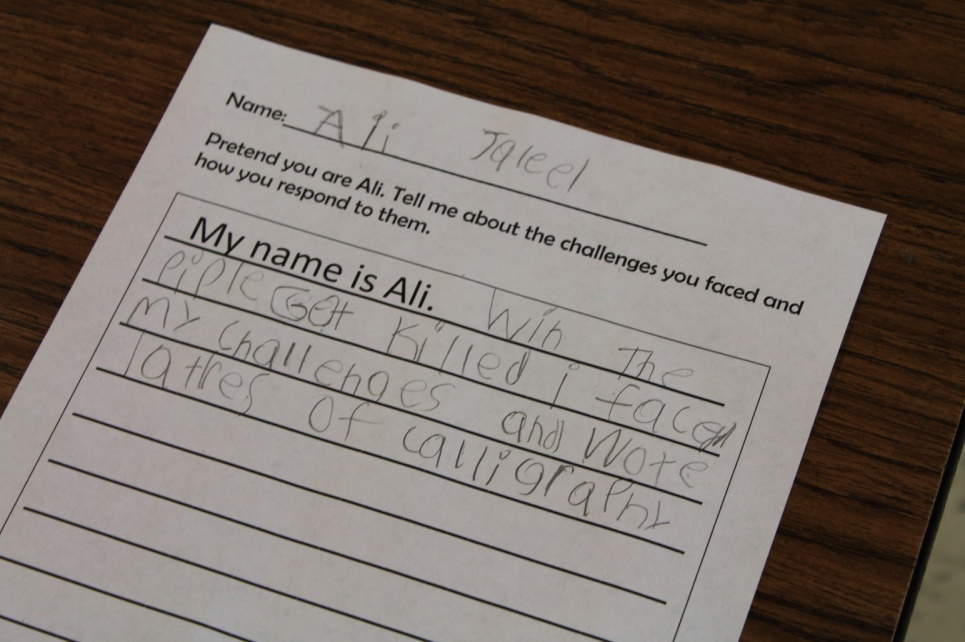 Name: Ali Jaleel
Pretend you are Ali. Tell me about the challenges you faced and
how you respond to them.
My name is Ali. Win The
piple Get killed i faced
my challenges and Wote
latres of calligraphy